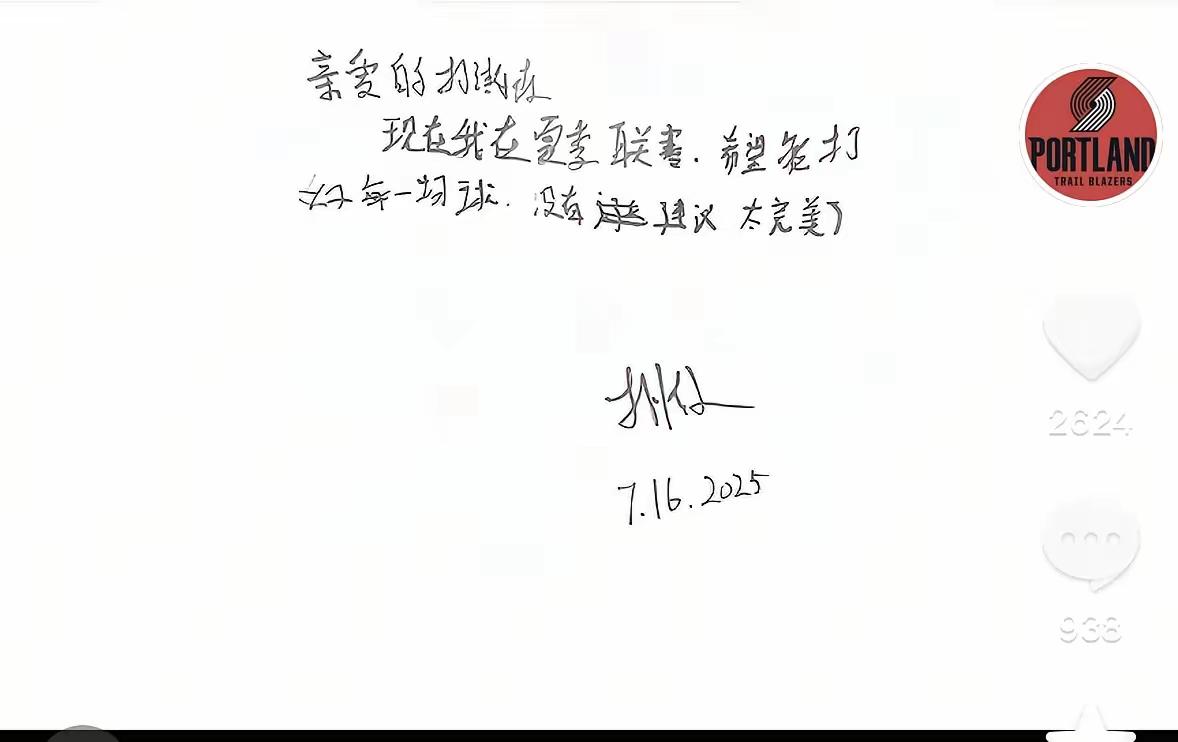 亲爱的杨瀚森
现在我在夏季联赛.希望能打
好每一场球.没有建议 太完美了
7.16.2025
PORTLAND
TRAIL BLAZERS
2624
938